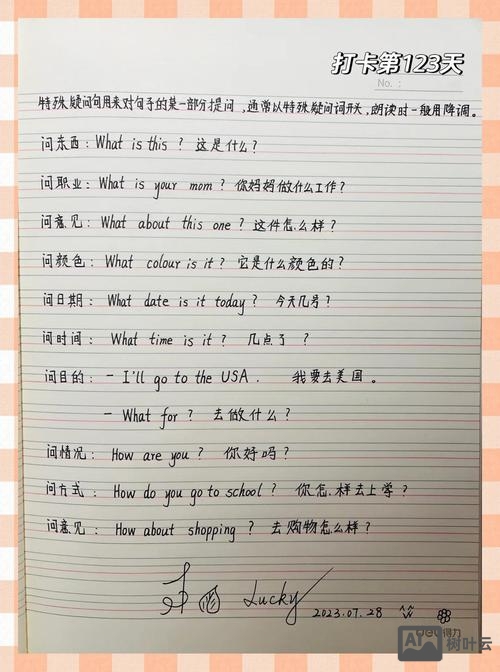 打卡第123天
No. :
特殊疑问句用来对句子的某一部分提问,通常以特殊疑问词开头,朗读时一般用降调。
问东西: What is this ? 这是什么?
问职业: What is your mom ? 你妈妈做什么工作?
问意见: What about this one ? 这件怎么样?
问颜色: What colour is it ? 它是什么颜色的?
问日期: What date is it today ? 今天几号?
问时间: What time is it ? 几点了 ?
问目的: - I'll go to the USA . 我要去美国。
- What for ? 去做什么?
问情况: How are you ? 你好吗?
问方式: How do you go to school ? 你怎样去上学?
问意见: How about shopping ? 去购物怎么样?
Lucky 2023.07.28
deli得力
树叶云